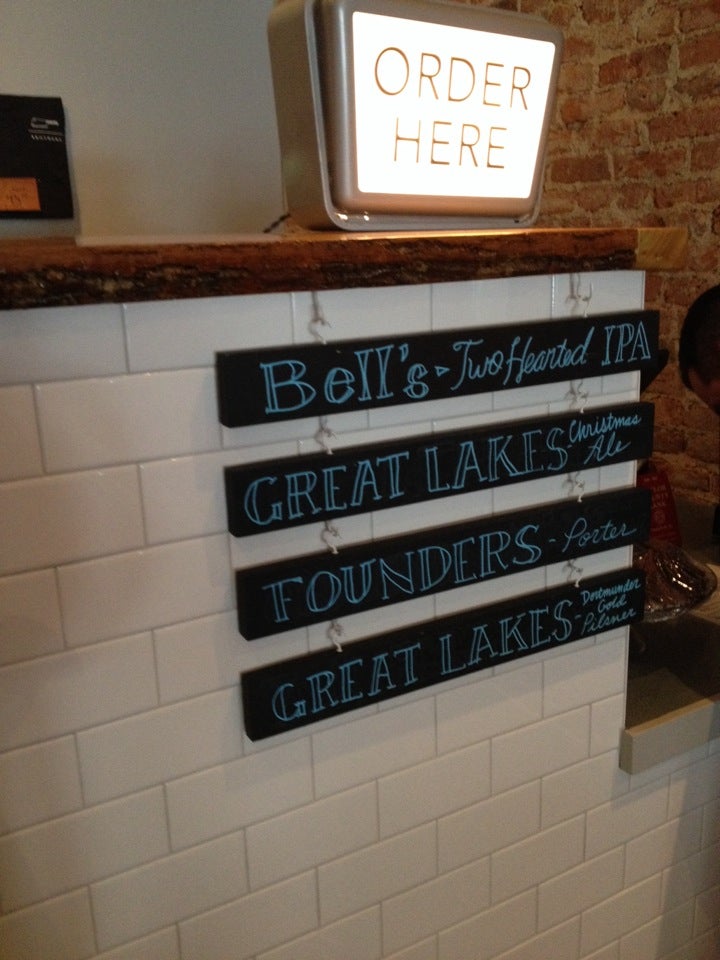 ORDER
HERE
Bell's - Two Hearted IPA
GREAT LAKES - Christmas
Ale
FOUNDERS - Porter
GREAT LAKES - Dortmunder
Gold
Pilsner